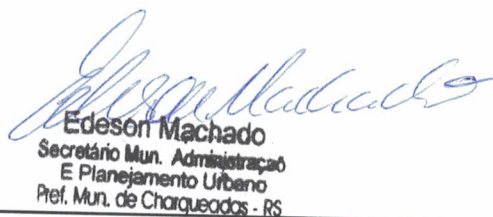 Edeson Machado
Edeson Machado
Secretário Mun. Administraçaõ
E Planejamento Urbano
Pref. Mun. de Charqueadas - RS